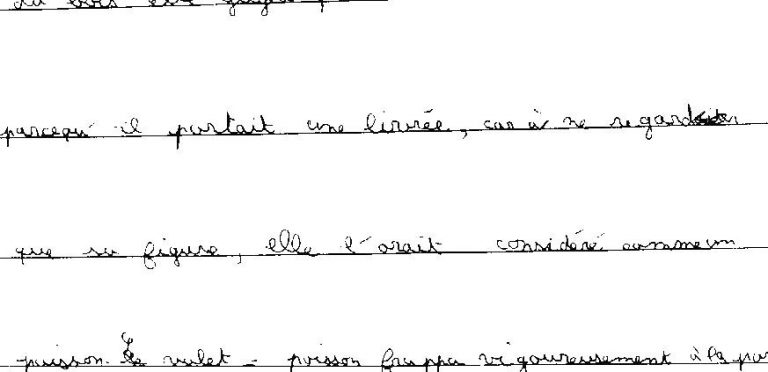 parcequ'il portait une livrée, car à ne regarder
que sa figure, elle l'avait considéré comme un
poisson. Le valet - poisson frappa vigoureusement à la por